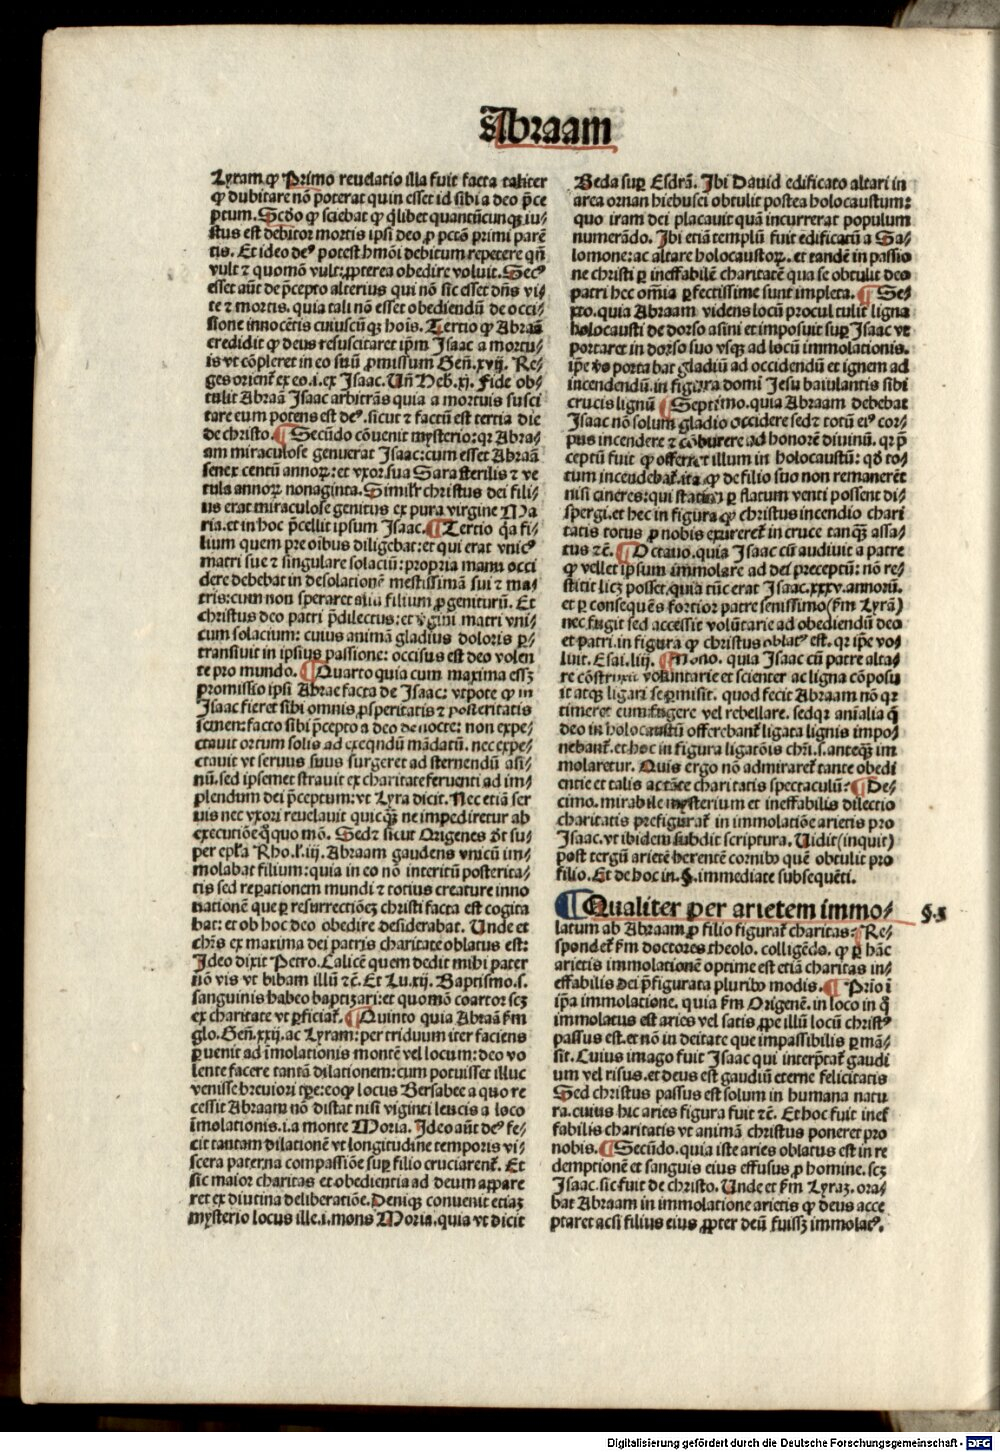 Abraam
Lyram ꝙ Primo reuelatio illa fuit facta taliter
ꝙ dubitare nō poterat quin esset id sibi a deo p̄ce
ptum. Scd̄o ꝙ sciebat ꝙ q̄libet quantūcunqꝫ iu⸗
stus est debitor mortis ipsi deo ꝓ pctm̄ primi parē
tis. Et ideo deꝰ potest hmōi debitum repetere qn̄
vult ⁊ quomō vult: ꝓpterea obedire voluit. Secꝰ
esset aūt de p̄cepto alterius qui nō sic esset dn̄s vi⸗
te ⁊ mortis. quia tali nō esset obediendū de occi⸗
sione innocētis cuiuscūqꝫ hoīs. Tertio ꝙ Abraā
credidit ꝙ deus resuscitaret ip̄m Isaac a mortu⸗
is vt cōpleret in eo suū ꝓmissum Gen̄.xvij. Re⸗
ges orient̄ ex eo.i.ex Isaac. Un̄ Heb.xj. Fide ob⸗
tulit Abraā Isaac arbitrās quia a mortuis susci
tare eum potens est deꝰ. sicut ⁊ factū est tertia die
de christo. ¶ Secūdo cōuenit mysterio: qꝛ Abra⸗
am miraculose genuerat Isaac: cum esset Abraā
senex centū annoꝝ: et vxor sua Sara sterilis ⁊ ve
tula annoꝝ nonaginta. Similr̄ christus dei fili⸗
us erat miraculose genitus ex pura virgine Ma
ria. et in hoc p̄cellit ipsum Isaac. ¶ Tertio q̄a fi⸗
lium quem pre oībus diligebat: et qui erat vnicꝰ
matri sue ⁊ singulare solaciū: propria manu occi
dere debebat in desolationē mestissimā sui ⁊ ma⸗
tris: cum non speraret aliū filium ꝓgeniturū. Et
christus deo patri p̄dilectus: et v̄gini matri vni⸗
cum solacium: cuius animā gladius doloris ꝑ⸗
transiuit in ipsius passione: occisus est deo volen
te pro mundo. ¶ Quarto quia cum maxima essꝫ
promissio ipsi Abrae facta de Isaac: vtpote ꝙ in
Isaac fieret sibi omnis ꝓsperitatis ⁊ posteritatis
semen: facto sibi p̄cepto a deo de nocte: non expe⸗
ctauit ortum solis ad exeqn̄dū mādatū. nec expe⸗
ctauit vt seruus suus surgeret ad sternendū asi⸗
nū. sed ipsemet strauit ex charitate feruenti ad im⸗
plendum dei p̄ceptum: vt Lyra dicit. Nec etiā ser
uis nec vxori reuelauit quicq̄ꝫ ne impediretur ab
executiōe q̄quo mō. Sedꝫ sicut Origenes dt̄ su⸗
per ep̄la Rho.l.iij. Abraam gaudens vnicū im⸗
molabat filium: quia in eo nō interitū posterita⸗
tis sed reparationem mundi ⁊ totius creature inno
uationē que ꝑ resurrectiōeꝫ christi facta est cogita
bat: et ob hoc deo obedire desiderabat. Unde et
chr̄s ex maxima dei patris charitate oblatus est:
Ideo dixit Petro. Calicē quem dedit mihi pater
nō vis vt bibam illū ⁊c̄. Et Lu.xij. Baptismo.s.
sanguinis habeo baptizari: et quomō coartor scꝫ
ex charitate vt ꝑficiat̄. ¶ Quinto quia Abraā fm̄
glo. Gen̄.xxij. ac Lyram: per triduum iter faciens
ꝑuenit ad īmolationis montē vel locum: deo vo
lente facere tantā dilationem: cum potuisset illuc
venisse breuiori tp̄e: eoꝙ locus Bersabee a quo re
cessit Abraam nō distat nisi viginti leucis a loco
īmolationis.i.a monte Moria. Ideo aūt deꝰ fe⸗
cit tantam dilationē vt longitudine temporis vi⸗
scera paterna compassiōe suꝑ filio cruciarent̄. Et
sic maior charitas et obedientia ad deum appare
ret ex diutina deliberatiōe. Deniqꝫ conuenit etiaꝫ
mysterio locus ille.i.mons Moria. quia vt dicit
Beda suꝑ Esdrā. Ibi Dauid edificato altari in
area ornan hiebusei obtulit postea holocaustum:
quo iram dei placauit quā incurrerat populum
numerādo. Ibi etiā templū fuit edificatū a Sa⸗
lomone: ac altare holocaustoꝝ. et tandē in passio
ne christi ꝑ ineffabilē charitatē qua se obtulit deo
patri hec om̄ia ꝑfectissime sunt impleta. ¶ Se⸗
xto. quia Abraam videns locū procul tulit ligna
holocausti de dorso asini et imposuit suꝑ Isaac vt
portaret in dorso suo vsqꝫ ad locū immolationis.
ip̄e v̄o portabat gladiū ad occidendū et ignem ad
incendendū. in figura domī Jesu baiulantis sibi
crucis lignū ¶ Septimo. quia Abraam debebat
Isaac nō solum gladio occidere sedꝫ totū eiꝰ cor⸗
pus incendere ⁊ cōburere ad honorē diuinū. qꝛ p̄
ceptū fuit ꝙ offerret illum in holocaustū: qd̄ to⸗
tum incendebat̄. ita ꝙ de filio suo non remaneret
nisi cineres: qui statim ꝑ flatum venti possent di⸗
spergi. et hec in figura ꝙ christus incendio chari
tatis totus ꝓ nobis exureret̄ in cruce tanqꝫ assa⸗
tus ⁊c̄. ¶ Octauo. quia Isaac cū audiuit a patre
ꝙ vellet ipsum immolare ad dei preceptū: nō re⸗
stitit licꝫ posset. quia tūc erat Isaac.xxxv.annorū.
et ꝑ consequēs fortior patre senissimo (fm̄ Lyrā)
nec fugit sed accessit volūtarie ad obediendū deo
et patri. in figura ꝙ christus oblatꝰ est. qꝛ ip̄e vo⸗
luit. Esai.liij. ¶ Nono. quia Isaac cū patre alta⸗
re cōstruxit voluntarie et scienter ac ligna cōposu
it atqꝫ ligari se ꝑmisit. quod fecit Abraam nō qꝛ
timeret eum fugere vel rebellare. sedqꝫ aīalia q̄
deo in holocaustū offerebant̄ ligata lignis impo⸗
nebant̄. et hoc in figura ligatōis chr̄i.s. anteqꝫ im
molaretur. Quis ergo nō admiraret̄ tante obedi
entie et talis ac tāte charitatis spectaculū: ¶ De⸗
cimo. mirabile mysterium et ineffabilis dilectio
charitatis prefigurat̄ in immolatiōe arietis pro
Isaac. vt ibidem subdit scriptura. Uidit (inquit)
post tergū arietē herentē cornibꝰ quē obtulit pro
filio. Et de hoc in. §. immediate subsequēti.
¶ Qualiter per arietem immo⸗ §.5
latum ab Abraam ꝓ filio figurat̄ charitas: ¶ Re⸗
spondet̄ fm̄ doctores theolo. colligēdo. ꝙ ꝑ hāc
arietis immolationē optime est etiā charitas in⸗
effabilis dei p̄figurata pluribꝰ modis. ¶ Prīo ī
ip̄a immolatione. quia fm̄ Origenē. in loco in q̄
immolatus est aries vel satis ꝓpe illū locū christꝰ
passus est. et nō in deitate que impassibilis ꝑmā⸗
sit. Cuius imago fuit Isaac qui interp̄tat̄ gaudi
um vel risus. et deus est gaudiū eterne felicitatis
Sed christus passus est solum in humana natu
ra. cuius hic aries figura fuit ⁊c̄. Et hoc fuit inef
fabilis charitatis vt animā christus poneret pro
nobis. ¶ Secūdo. quia iste aries oblatus est in re
demptionē et sanguis eius effusus ꝓ homine. scꝫ
Isaac. sic fuit de christo. Unde et fm̄ Lyraꝫ. ora⸗
bat Abraam in immolatione arietis ꝙ deus acce
ptaret acsi filius eius ꝓpter deū fuissꝫ immolatꝰ.
Digitalisierung gefördert durch die Deutsche Forschungsgemeinschaft - DFG